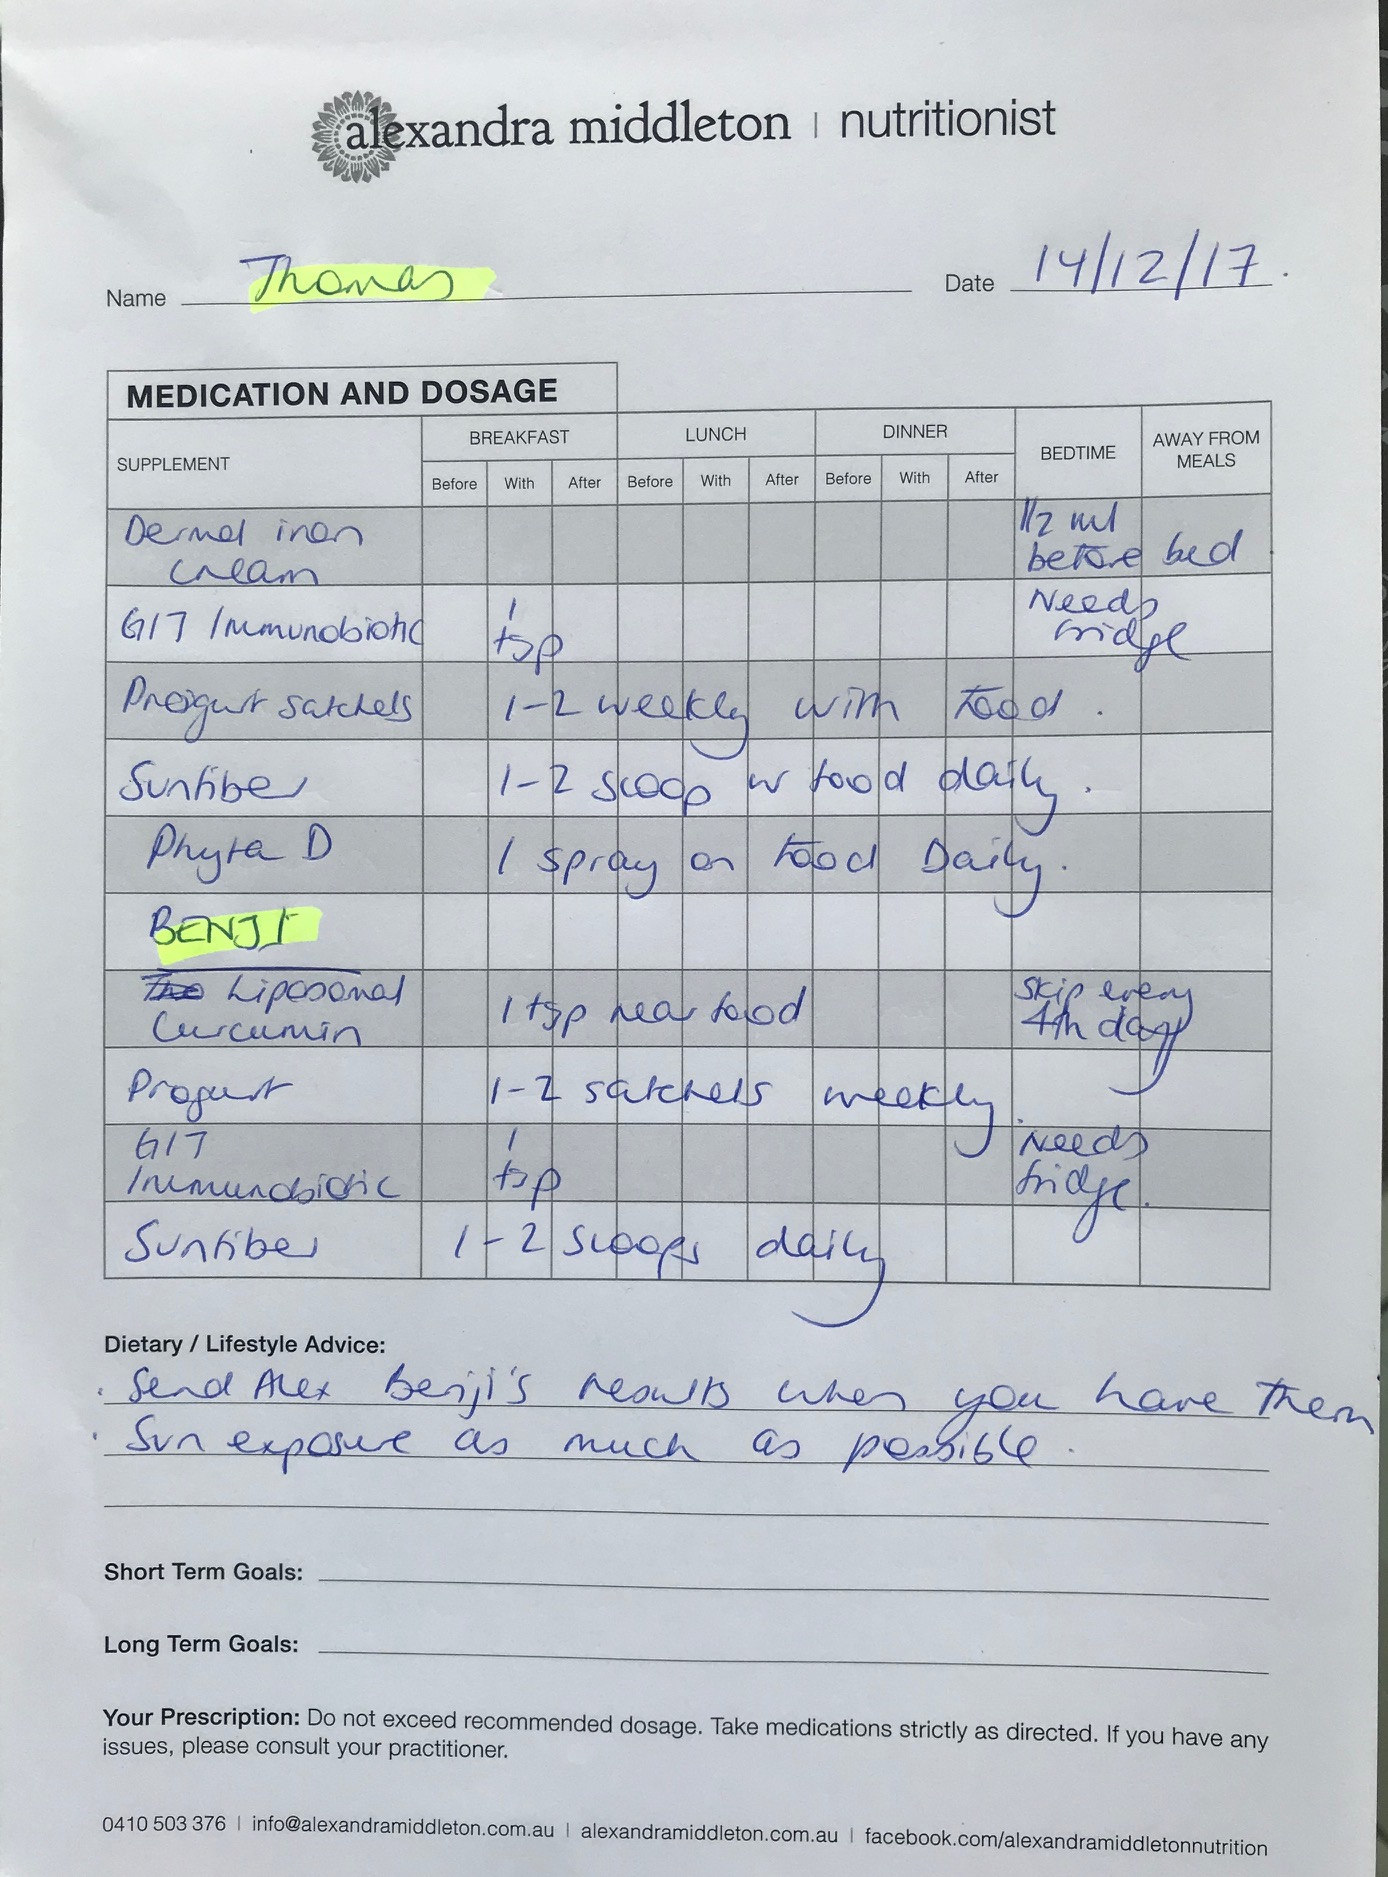 alexandra middleton | nutritionist
Name Thomas Date 14/12/17.
MEDICATION AND DOSAGE
SUPPLEMENT BREAKFAST LUNCH DINNER BEDTIME AWAY FROM MEALS
Before With After Before With After Before With After
Dermal iron cream 1/2 ml before bed
GIT Immunobiotic 1 tsp Needs fridge
Progurt satchels 1-2 weekly with food.
Sunfiber 1-2 scoop w food daily.
Phyta D 1 spray on food Daily.
BENJI
Liposomal Curcumin 1 tsp near food Skip every 4th day
Progurt 1-2 satchels weekly.
GIT Immunobiotic 1 tsp Needs fridge.
Sunfiber 1-2 scoops daily
Dietary / Lifestyle Advice:
· Send Alex Benji's results when you have them
· Sun exposure as much as possible.
Short Term Goals:
Long Term Goals:
Your Prescription: Do not exceed recommended dosage. Take medications strictly as directed. If you have any
issues, please consult your practitioner.
0410 503 376 | info@alexandramiddleton.com.au | alexandramiddleton.com.au | facebook.com/alexandramiddletonnutrition